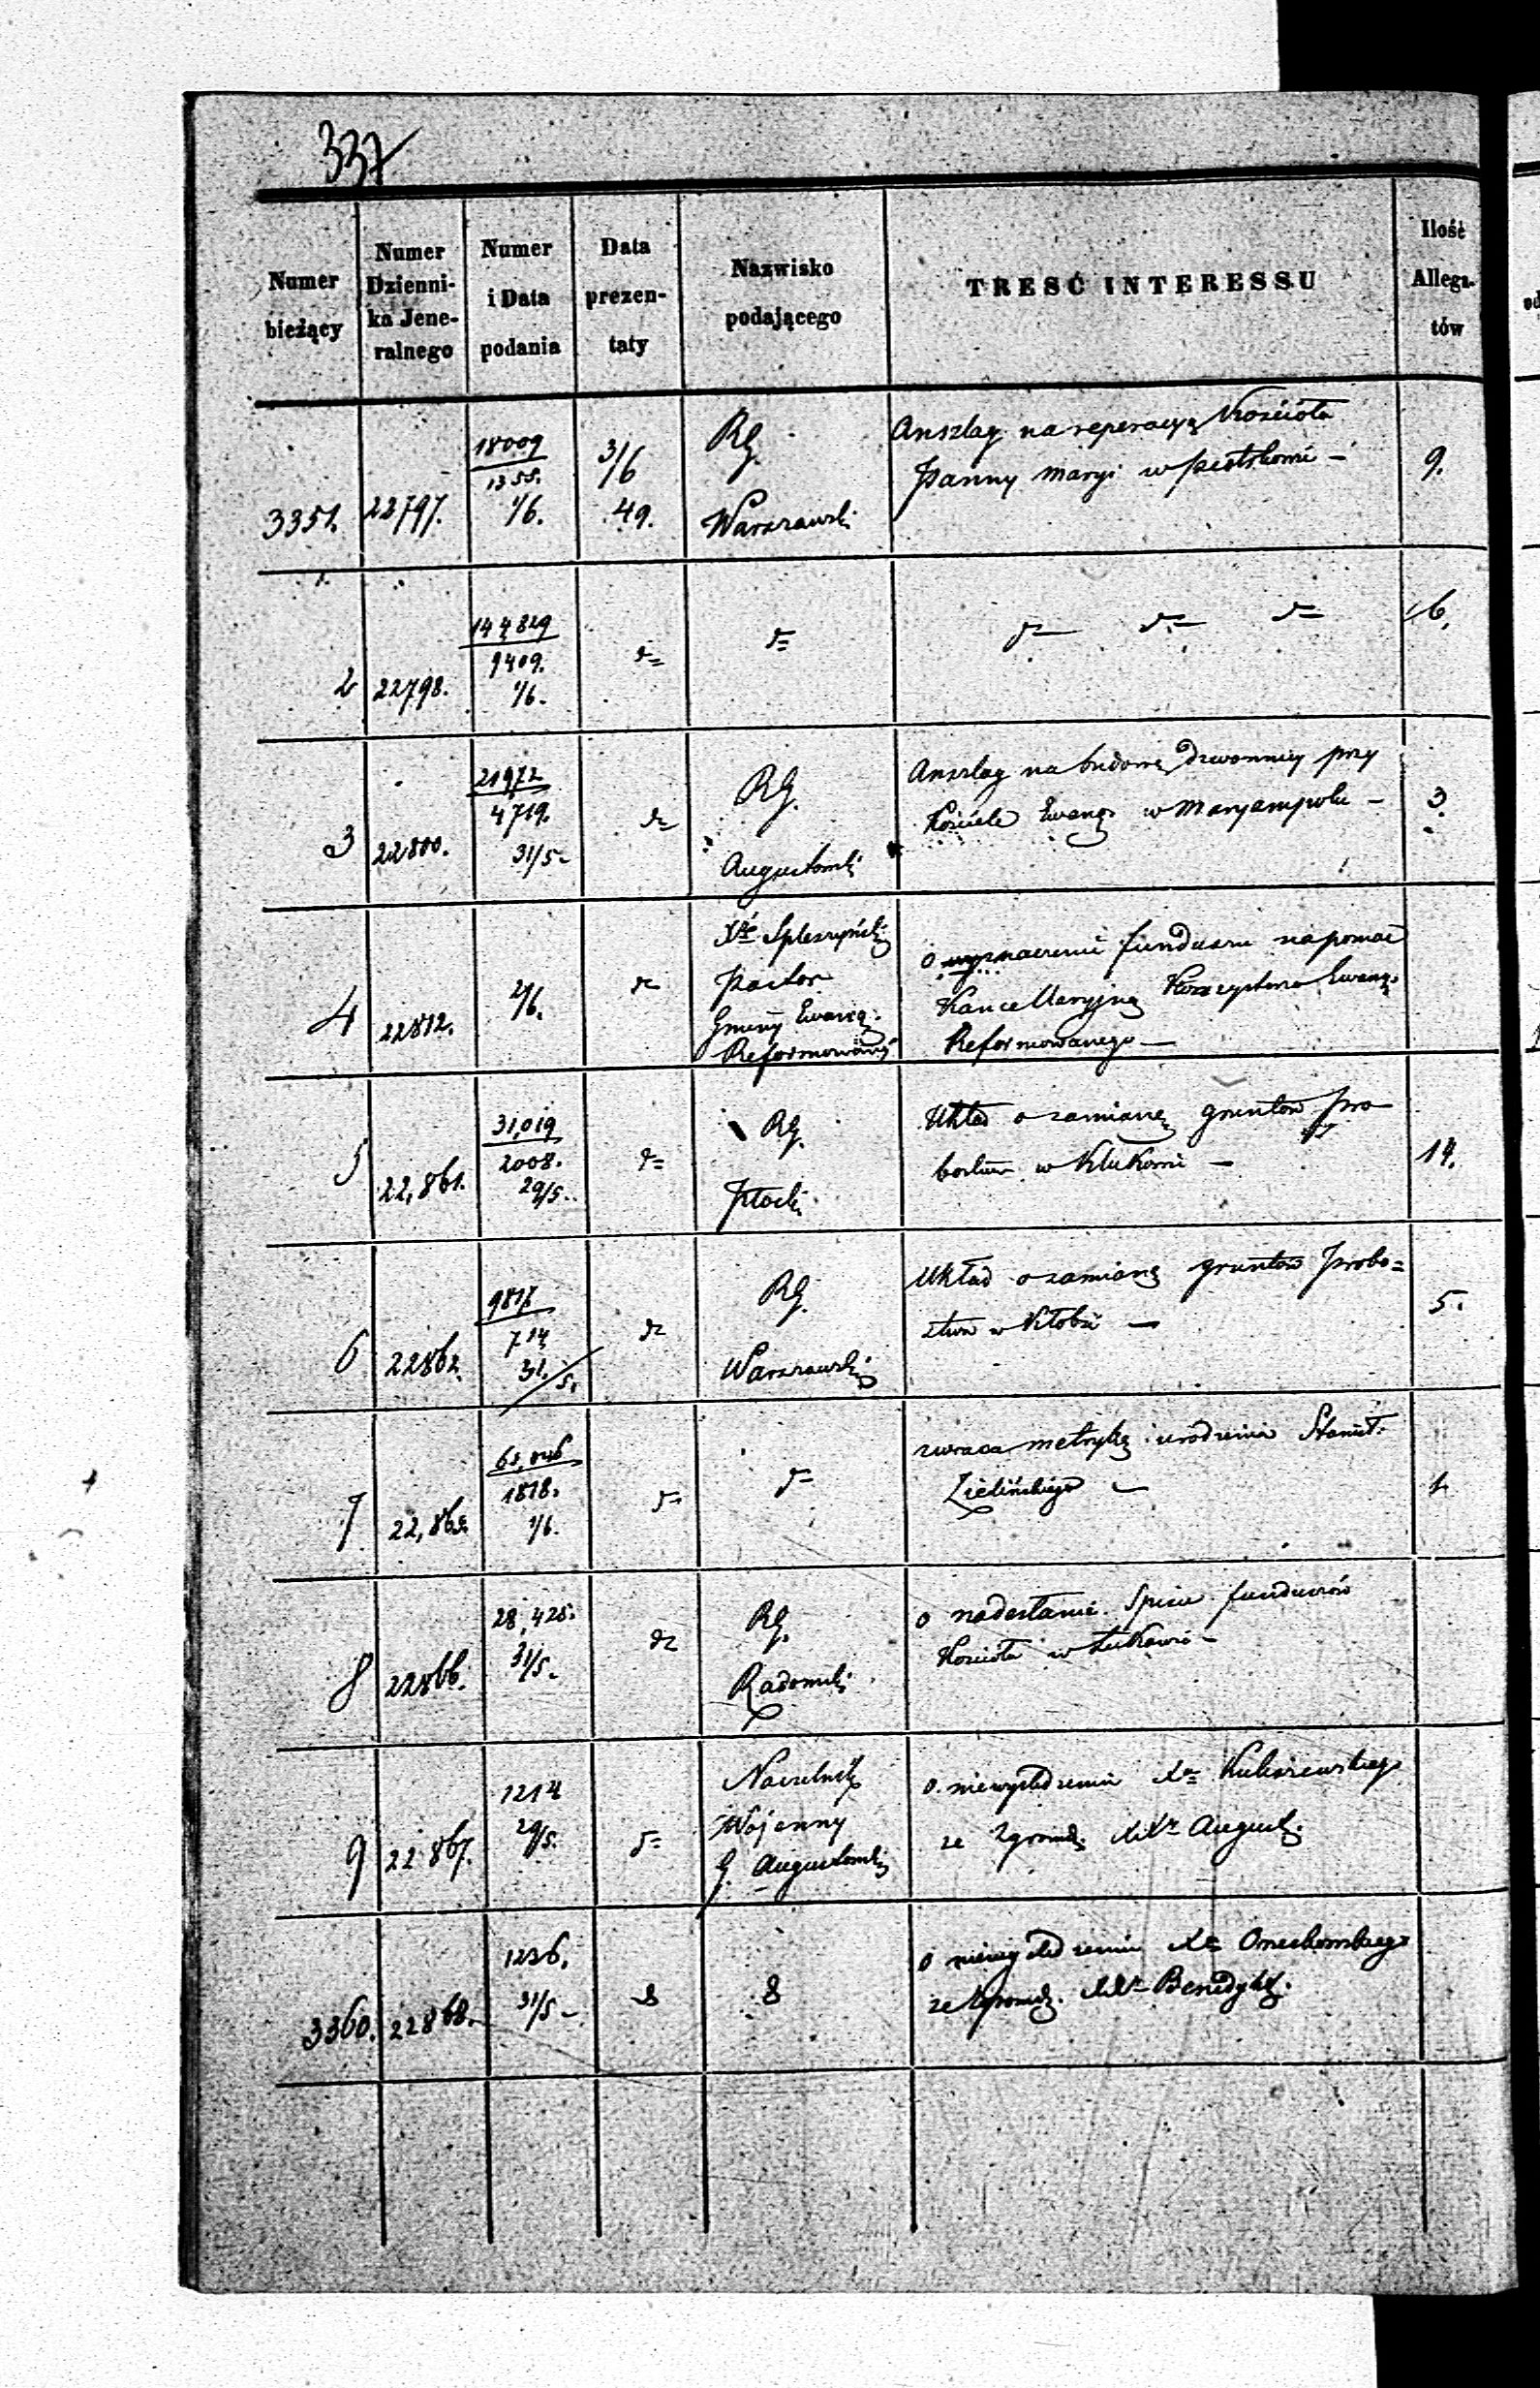 337
Numer bieżący
Numer Dzienni-ka Jene-ralnego
Numer i Data podania
Data prezen-taty
Nazwisko podającego
TREŚĆ INTERESSU
Ilość Allega-tów
3351. 22797. 18009 / 1355. 1/6. 3/6 49. RG. Warszawski
Anszlag na reperacyą Kościoła
Panny Maryi w Piotrkowie — 9.
2 22798. 144,829 / 9409. 1/6. d= d= d= d= d= 16.
3 22800. 21972 / 4719. 31/5 d= RG. Augustowski
Anszlag na budowę dzwonnicy przy
Kościele Ewang. w Maryampolu — 3.
4 22812. 2/6. d=
Pastor
Gminy Ewang.
Reformowanej
o wyznaczenie funduszu na pomoc
Kancellaryjną Ewang.
Reformowanego —
5 22,861. 31,019 / 2008. 29/5. d= RG. Płocki
Układ o zamianę gruntów pro
bostwa w — 14.
6 22862. 9817 / 714 31/5. d= RG. Warszawski
Układ o zamianę gruntów Probo=
stwa w Kłobi — 5.
7 22,865. 1818. 1/6. d= d=
zwraca metrykę urodzenia Stanisł.
Zielińskiego — 1.
8 22866. 28,425. 31/5 d= RG. Radomski
o nadesłanie Spisu funduszów
Kościoła w
9 22867. 1214 29/5. d=
Naczelnik
Wojenny
G. Augustowski
o
ze Zgrom. August.
3360. 22868. 1236. 31/5 —
o
ze Zgromdz. Benedykt.